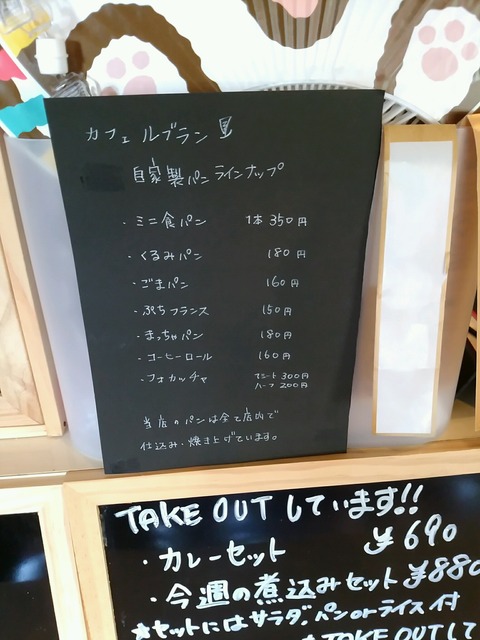 カフェ ルブラン
自家製パンラインナップ
・ミニ食パン 1本 350円
・くるみパン 180円
・ごまパン 160円
・ぷちフランス 150円
・まっちゃパン 180円
・コーヒーロール 160円
・フォカッチャ プレート 300円
ハーフ 200円
当店のパンは全て店内で
仕込み・焼き上げています。
TAKE OUTしています!!
・カレーセット ¥690
・今週の煮込みセット ¥880
★セットにはサラダ、パンorライス付
TAKE OUTして